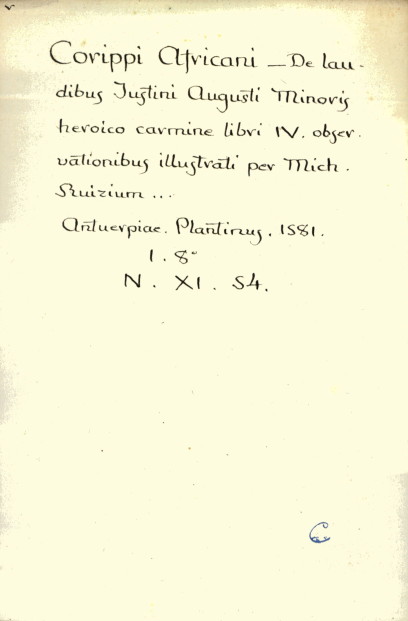 Corippi Africani — De lau-
dibus Iustini Augusti Minoris
heroico carmine libri IV. obser-
vationibus illustrati per Mich.
Ruizium ...
Antuerpiae. Plantinus. 1581.
1. 8º
N. XI. 54.
C